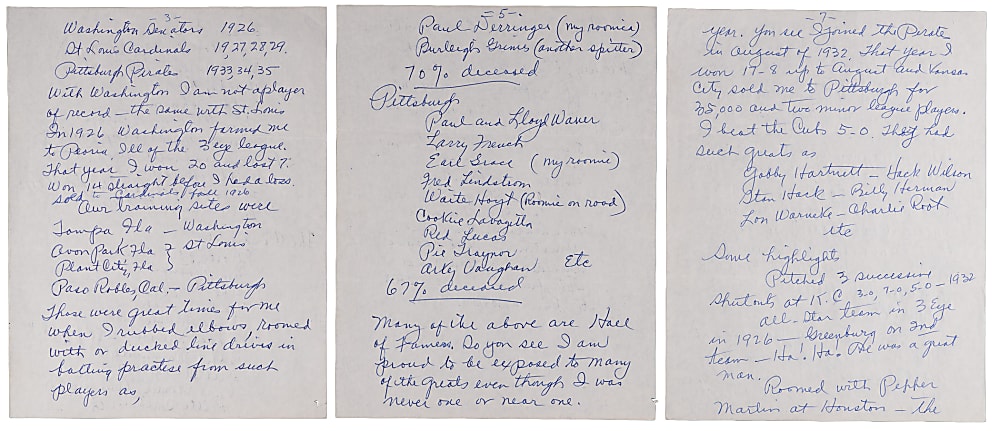 -3-
Washington Senators 1926
St Louis Cardinals 19,27,28,29.
Pittsburgh Pirates 1933,34,35
With Washington I am not a player
of record - the same with St. Louis
In 1926 Washington farmed me
to Peoria, Ill of the 3 eye league.
That year I won 20 and lost 7.
Won 14 straight before I had a loss.
sold to Cardinals, fall 1926
Our training sites were
Tampa Fla - Washington
Avon Park Fla } St Louis
Plant City, Fla
Paso Robles, Cal. - Pittsburgh
These were great times for me
when I rubbed elbows, roomed
with or ducked line drives in
batting practise from such
players as,
-5-
Paul Derringer (my roomie)
Burleigh Grimes (another spitter)
70% deceased
Pittsburgh
Paul and Lloyd Waner
Larry French
Earl Grace (my roomie)
Fred Lindstrom
Waite Hoyt (Roomie on road)
Cookie Lavagetto
Red Lucas
Pie Traynor
Arky Vaughan Etc
67% deceased
Many of the above are Hall
of Famers. So you see I am
proud to be exposed to many
of the greats even though I was
never one or near one.
-7-
year. You see I joined the Pirate
in August of 1932. That year I
won 17-8 up to August and Kansas
City sold me to Pittsburgh for
35,000 and two minor league players.
I beat the Cubs 5-0. They had
such greats as
Gabby Hartnett - Hack Wilson
Stan Hack - Billy Herman
Lon Warneke - Charlie Root
etc
Some highlights
Pitched 3 successive
shutouts at K.C. 3-0, 7-0, 5-0 - 1932
all-star team in 3 Eye
in 1926 - Greenburg on 2nd
team - Ha! Ha! He was a great
man.
Roomed with Pepper
Martin at Houston - the